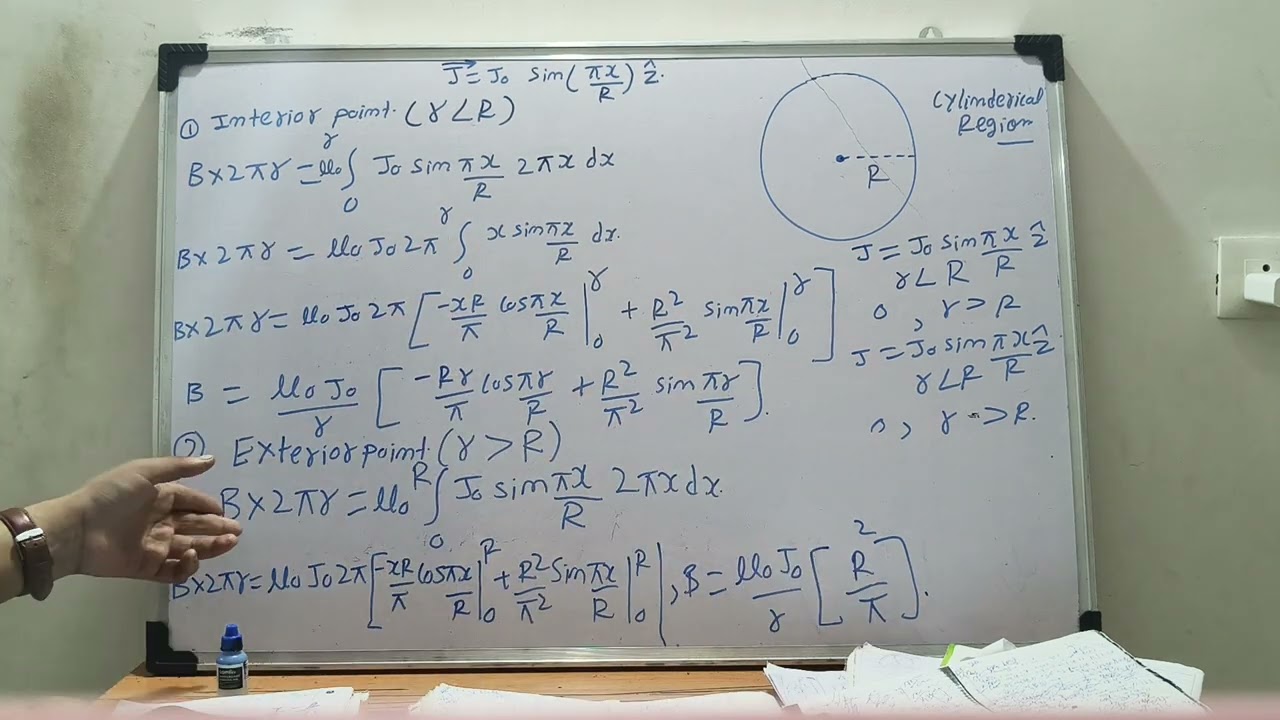 J⃗ = J₀ sin(πx/R) ẑ.
① Interior point. (r < R)
B×2πr = μ₀ ∫₀^r J₀ sin πx/R 2πx dx
B×2πr = μ₀ J₀ 2π ∫₀^r x sin πx/R dx.
B×2πr = μ₀ J₀ 2π [ -xR/π cos πx/R |₀^r + R²/π² sin πx/R |₀^r ]
B = μ₀ J₀/r [ -Rr/π cos πr/R + R²/π² sin πr/R ].
② Exterior point. (r > R)
B×2πr = μ₀ ∫₀^R J₀ sin πx/R 2πx dx.
B×2πr = μ₀ J₀ 2π [ -xR/π cos πx/R |₀^R + R²/π² sin πx/R |₀^R | , B = μ₀ J₀/r [ R²/π ].
Cylinderical
Region
R
J = J₀ sin πx/R ẑ
r < R
0 , r > R
J = J₀ sin πx/R ẑ
r < R
0 , r > R.